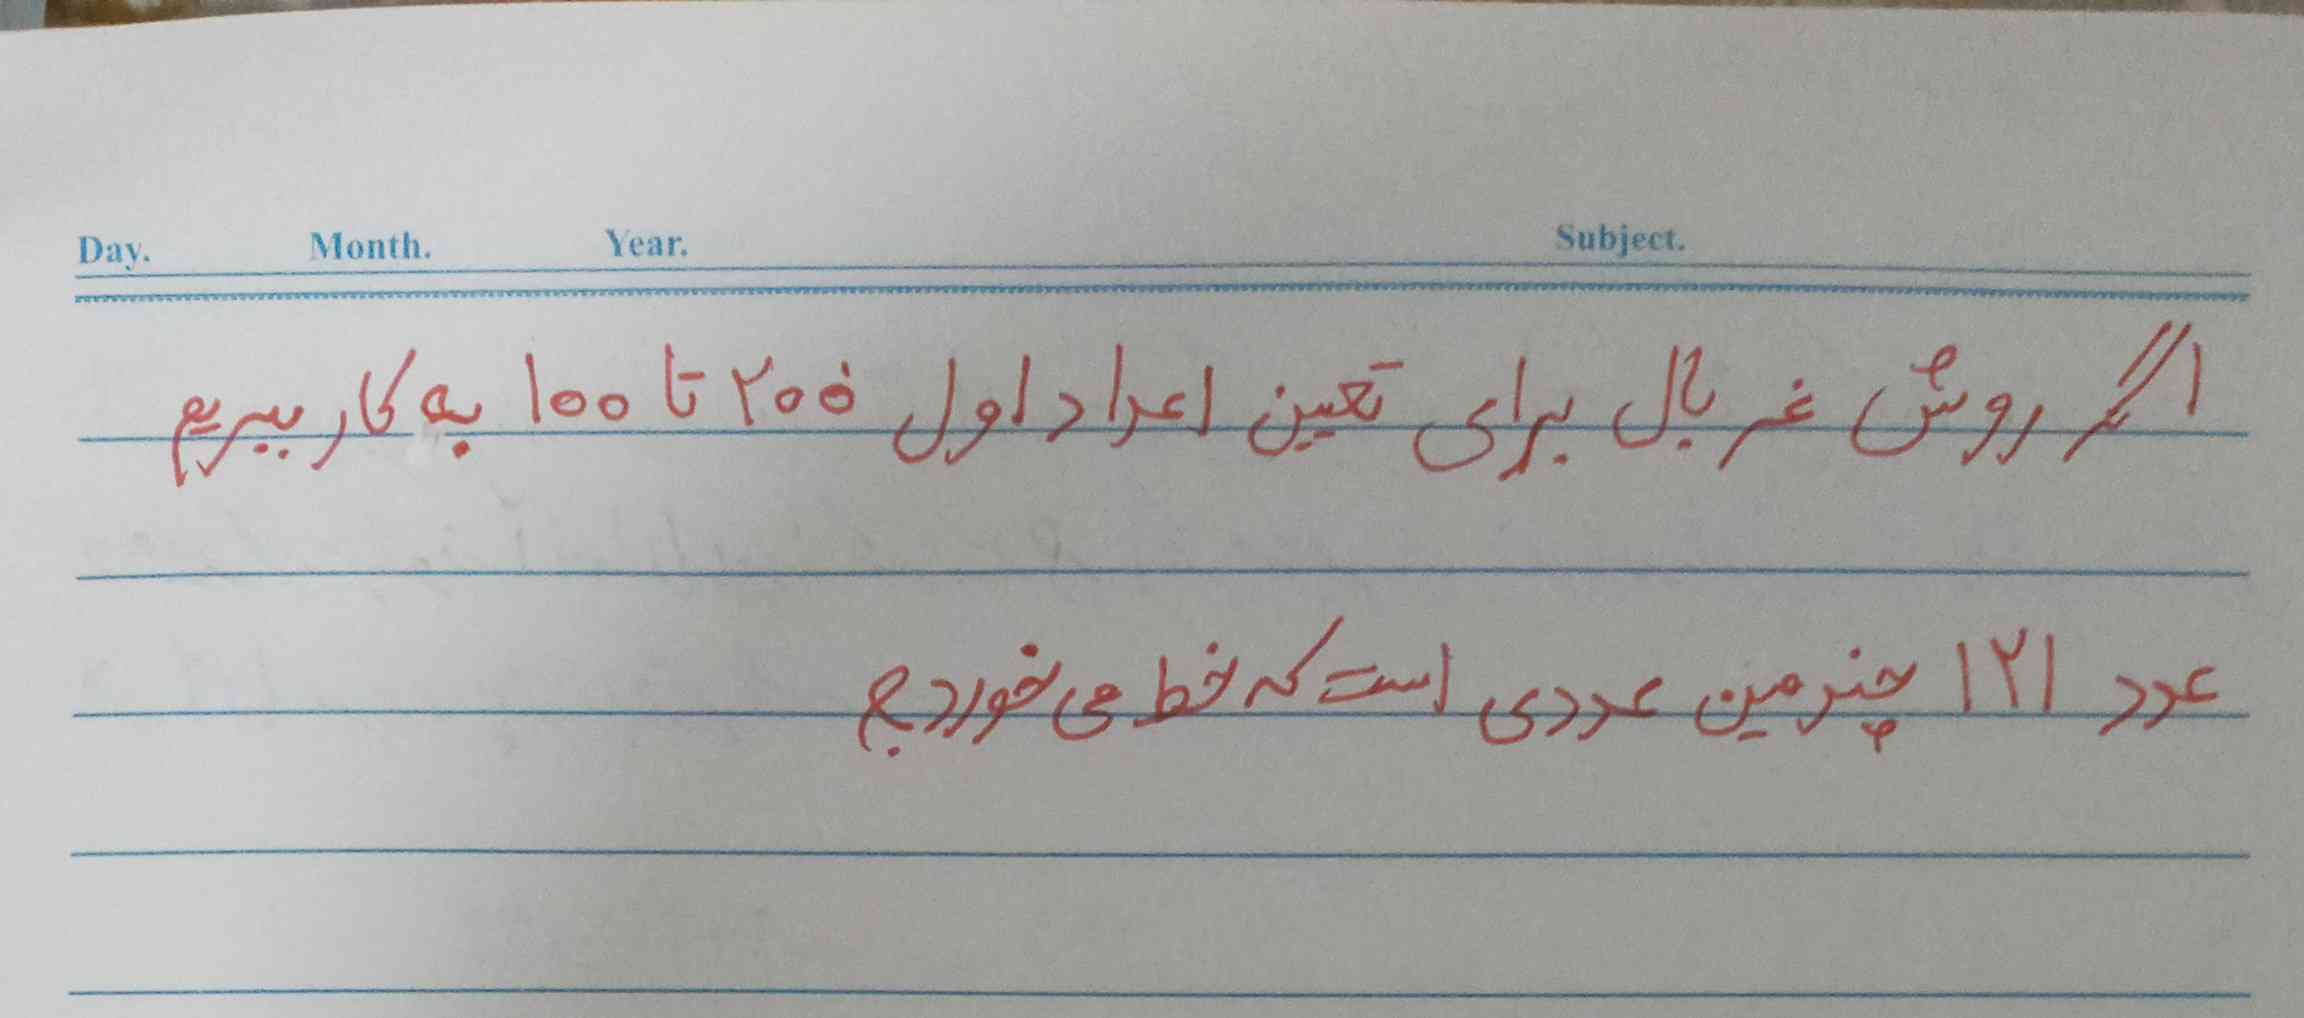 Day. Month. Year. Subject.
اگر روش غربال برای تعیین اعداد اول ۲۰۰ تا ۱۰۰ به کار ببریم
عدد ۱۲۱ چندمین عددی است که خط می خورد؟